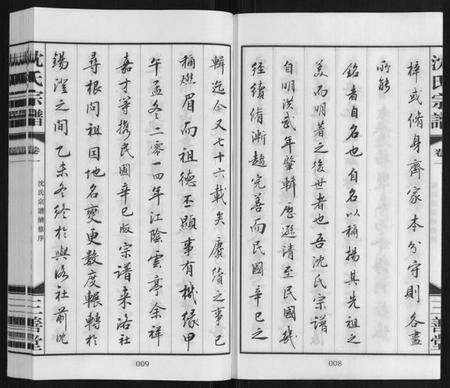 沈氏宗譜
卷一
三善堂
梓或脩身齊家本分守則各盡
所能
銘者自名也自名以稱揚其先祖之
美而明著之後世者也吾沈氏宗譜
自明洪武年肇輯歷遜清至民國幾
經續脩漸趨完善而民國辛巳之
008
輯迄今又七十六載矣賡續之事已
稱燃眉而祖德丕顯事有機緣甲
午孟冬二零一四年江陰雲亭余祥
嘉才等携民國辛巳版宗譜來洛社
尋根問祖因地名變更數度輾轉於
錫澄之間乙未冬終於與洛社前沈
009
沈氏宗譜
卷一
沈氏宗譜續修序
三善堂